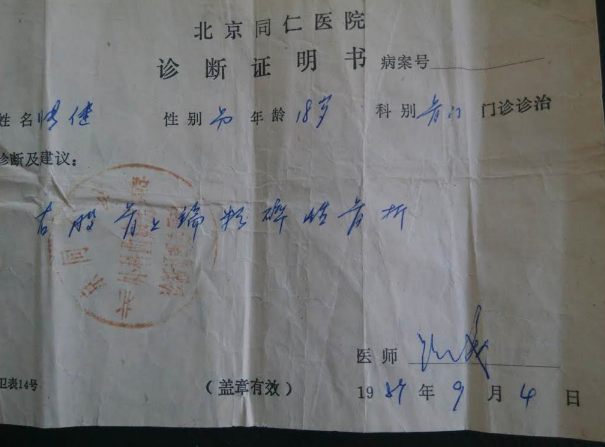 北京同仁医院
诊断证明书 病案号
姓名 健 性别 男 年龄 18岁 科别 骨门 门诊诊治
诊断及建议:
右股骨上端粉碎性骨折
医师
卫表14号 (盖章有效) 1989年9月4日